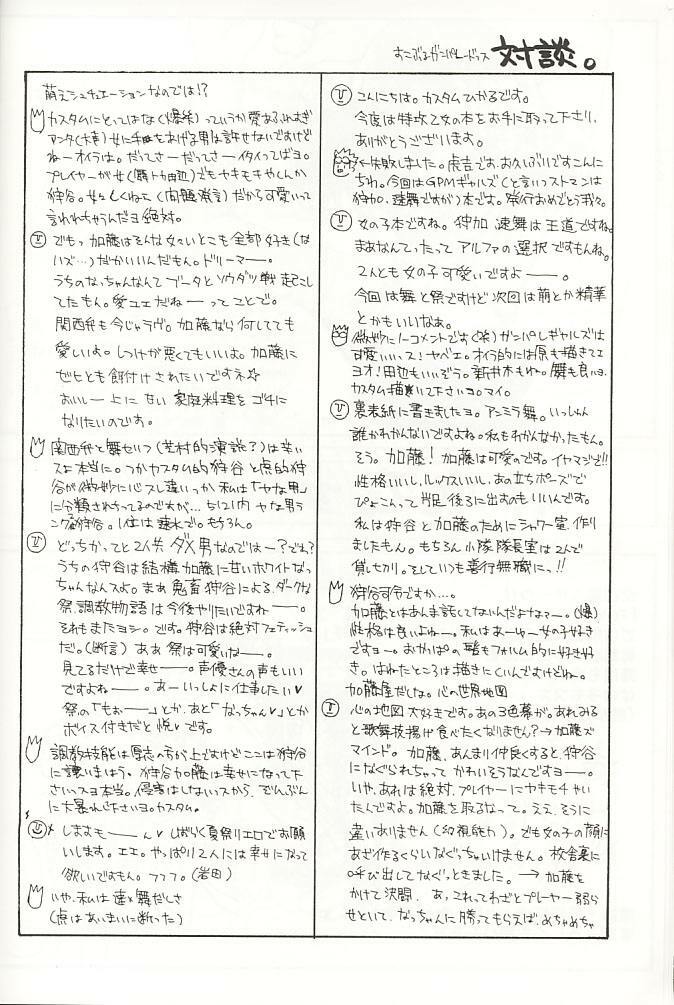 すこぶるガンパレードっス 対談。
こんにちは。カスタムひかるです。
今度は特攻乙女の本をお手に取って下さり、
ありがとうございます。
←失敗しました。虎吉です。お久しぶりですこんに
ちわ。今回はGPMギャルズ(と言いつストマンは
狩加、速舞ですが)本です。発行おめでとう我々。
女の子本ですね。狩加 速舞は王道ですね。
まあなんてったって アルファの選択ですもんね。
2人とも女の子可愛いですよーー。
今回は舞と祭ですけど次回は萌とか精華
とかもいいなぁ。
微妙にノーコメントです(笑)ガンパレギャルズは
可愛いいっス!ヤベェ。オイラ的には原も描きてェ
ヨオ!田辺もいいぞう。新井木もね。瞬も良いヨ。
カスタム描いて下さいヨ。マイ。
裏表紙に書きましたヨ。アンミラ舞。いっしゅん
誰かわかんないですよね。私もわかんなかったもん。
そう。加藤!加藤は可愛のです。イヤマジで!!
性格いいし、ルックスいいし、あの立ちポーズで
ぴょこんって片足後ろに出すのもいいんです。
私は狩谷と加藤のためにシャワー室作り
ましたもん。もちろん小隊隊長室は2人で
貸し切り。そしていつも善行無職にっ!!
狩谷司令ですか…。
加藤とはあんま話してないんだよなァー。(爆)
性格は良いよねー。私はあーゆー女の子好き
ですヨー。おかっぱの髪もフォルム的に好き好
き。はねたところは描きにくいんですけどね。
加藤屋だしな。心の世界地図
心の地図大好きです。あの3色幕が。あれみる
と歌舞伎揚げ食べたくなりません?→加藤ズ
マインド。加藤、あんまり仲良くすると、狩谷
になぐられちゃって かわいそうなんですヨーー。
いや、あれは絶対、プレイヤーにヤキモチやい
たんですよ。加藤を取るなって。ええ、そうに
違いありません(幻視能力)。でも女の子の顔に
あざ作るくらいなぐっちゃいけません。校舎裏に
呼び出してなぐっときました。→加藤を
かけて決闘。あ、これってわざとプレーヤー弱ら
せといて、なっちゃんに勝ってもらえば、めちゃめちゃ
萌えシュチュエーションなのでは!?
カスタムにとってはな(爆笑)っていうか愛あふれすぎ
アンタ(大寿)女に手をあげる男は許せないですけど
ねーオイラは。だってさーだってさーイタイってばヨ。
プレイヤーが女(瞬トカ田辺)でもヤキモキやくんか
狩谷。女々しくねェ(問題発言)だから可愛いって
言われちゃうんだヨ絶対。
でもっ 加藤はそんな女々いとこも全部好き(な
ハズ…)だからいいんだもん。ドリーマー。
うちのなっちゃんなんて ブータとソウダツ戦 起こし
てたもん。愛ユエだねーーってことで。
関西弁も今じゃラヴ。加藤なら何してても
愛しいよ。しつけが悪くてもいいよ。加藤に
ゼヒとも餌付けされたいですネ☆
おいしー上にせい家庭料理をゴチに
なりたいのです。
関西弁と舞せいつ(芝村的演説?)は辛い
スよ本当に。つかカスタム的狩谷と虎的狩
谷が微妙に心スレ違いっか 私は「ヤな男」
に分類されちってるのですが… ちにうけ ヤな男ラ
ンク2狩谷。1位は速水で。もちろん。
どっちかってと2人共、ダメ男なのではー?でね?
うちの狩谷は結構 加藤に甘いホワイトなっ
ちゃんなんスよ。まあ鬼畜狩谷による、ダークな
祭調教物語は今後やりたいですねーー。
それもまたヨシ。です。狩谷は絶対フェティッシュ
だ。(断言) ああ 祭は可愛いねー。
見てるだけで幸せー。声優さんの声もいい
ですよねーー。あーいっしょに仕事したい♥
祭の「もぉーー」とか、あと「なっちゃん♥」とか
ボイス付きだと悦♥です。
調教技能は厚志の方が上ですけどここは狩谷
に譲いましょう。狩谷加藤は幸せになって下
さいっスヨ本当。侵害はしないスから、ぞんぶん
に大暴れ下さいヨ。カスタム。
しますもーーん♥ しばらく夏祭りエロでお願
いします。エエ。やっぱり2人には幸せになって
欲しいですもん。フフフ。(岩田)
いや、私は速×舞だしさ
(虎はあいまいに断った)